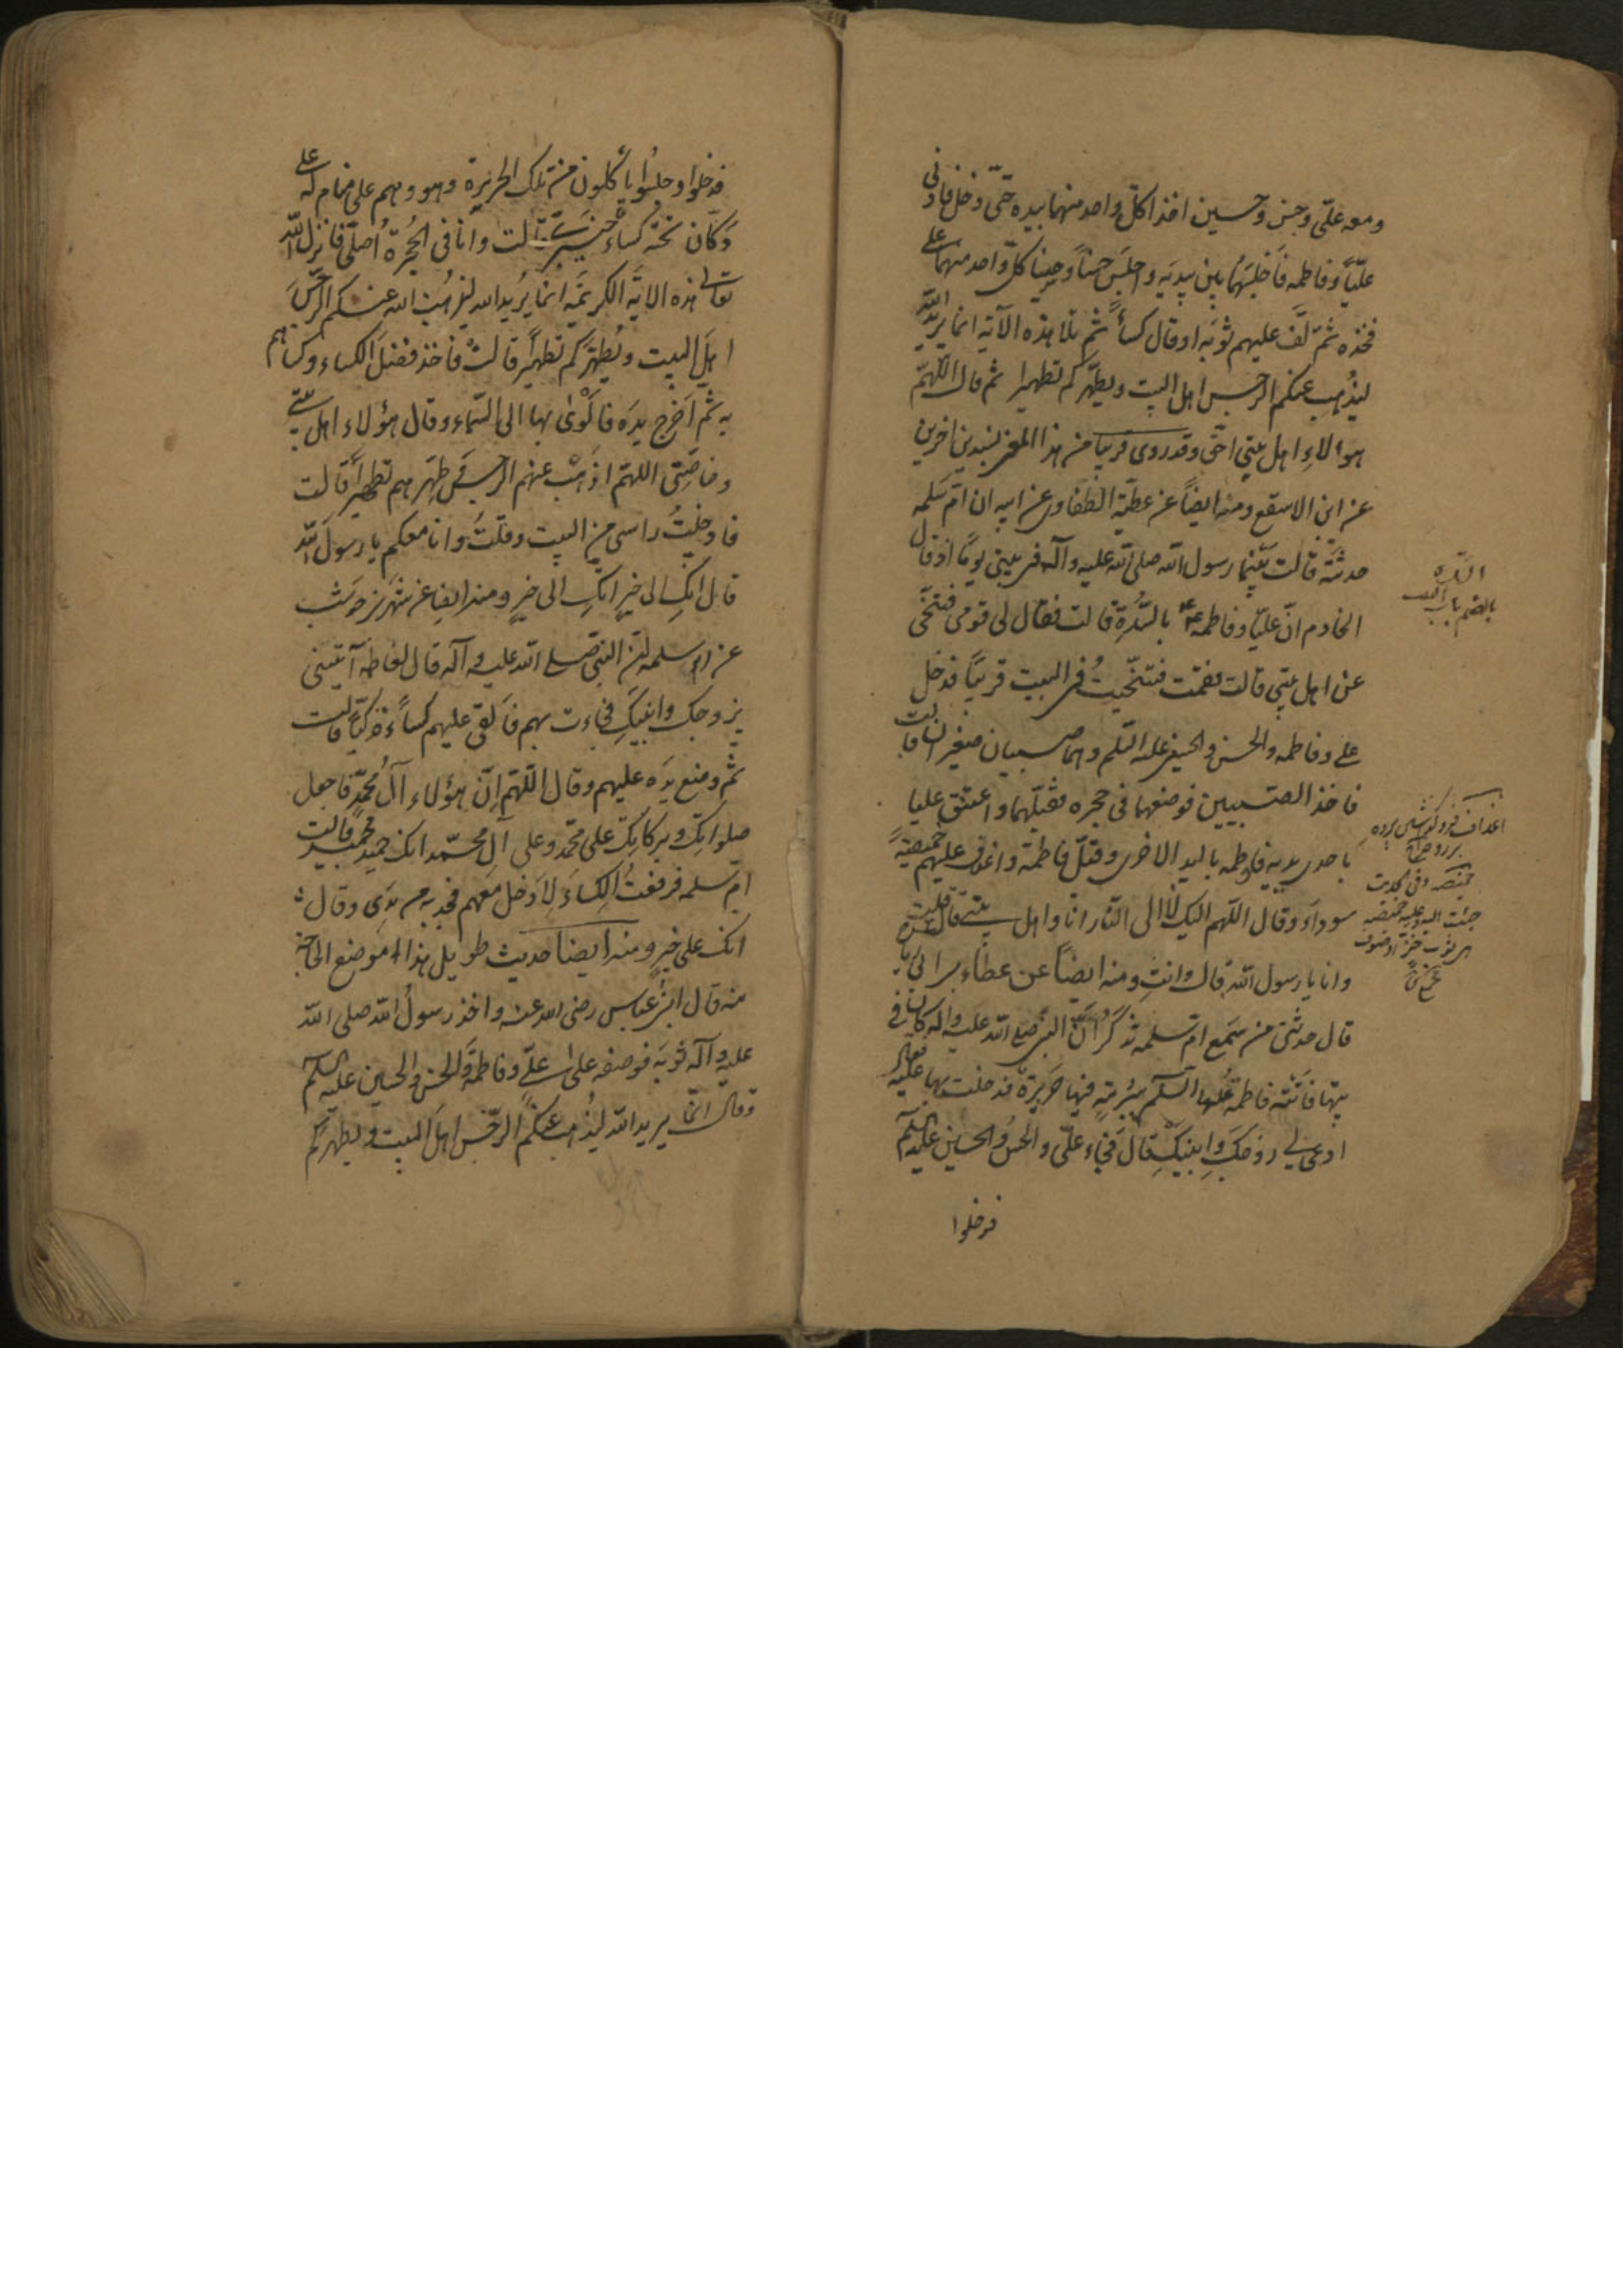 ومعه علیّ وحسن وحسین اخذا کلّ واحد منهما بیده حتّی دخل فادنی
علیّاً وفاطمه فَاَجلَسَهُما بین یدیَه واجلَسَ حسناً وحسیناً کلّ واحد منهما علی
فخذه ثمّ لَفّ علیهم ثوبَه او قال کساءً ثمّ تلا هذه الآیة انما یرید الله
لیذُهب عنکم الرجس اهل البیت ویطهّرکم تطهیرا ثم قال اللّهمّ
هؤلاءِ اهل بیتی احقّ وقد روی قریباً من هذا المعنی بسندین اخرین
عن ابن الاسقع ومنه ایضاً عن عطیّة الطفاوی عن ابیه ان امّ سلمه
حدثته قالت بَیْنما رسول الله صلی الله علیه وآله فی بیتی یوماً اذ قال
الخادم انّ علیّا وفاطمه ع بالسُّدةِ قالت فقال لی قومی فتنحّی
عن اهل بیتی قالت فقمت فتنحّیتُ فی البیت قریباً فدخل
علی وفاطمه والحسن والحسین علیهم السّلم وهما صبیان صغیران قالت
فاخذ الصّبیین فوضعهما فی حجره فقبّلهما واعتنق علیا
باحدی یدیه وفاطمه بالید الاخری وقبّل فاطمة واغدف علیهم خمیصةً
سوداءَ وقال اللّهم الیک لا الی النّار انا واهل بیتی قالت قلت
وانا یا رسول الله قال وانتِ ومنه ایضاً عن عطاء بن ابی رباح
قال حدثنی من سَمِع امّ سلمه تذکُرُ انّ النبی صلی الله علیه واله کان فی
بیتها فَاَتَتْه فاطمة علیها السّلم ببُرمةٍ فیها حَریرَة فدخلت بها علیه فقال
ادعی لی زوجَکِ وابنیکِ قال فجاء علیّ والحسن والحسین علیهم السلم
فدخلوا
السّدّه
بالضم باب البیت
اغداف فروگذاشتن پرده
بر روی
خمیصه وفی الحدیث
جئت الیه وعلیه خمیصه
هی ثوب خزّ او صوف
فدخلوا وجلسُوا یأکلون من تلک الحریرة وهو وهم علی منام له علی
دکّان تحته کساء خیبریّ قالت وانا فی الحُجرة اُصلّی فانزل الله
تعالی هذه الایة الکریمَة انما یُرید الله لیذهب الله عنکم الرّجسَ
اهلَ البیت ویُطهّرکم تطهیراً قالتْ فاخذ فضلَ الکساء وکساهم
به ثمّ اَخرج یدَه فاَلْوی بها الی السّماء وقال هؤلاء اهل بیتی
وخاصّتی اللهمّ اذهَبْ عنهم الرجس وطهّرهم تطهیراً قالت
فادخلتُ راسی من البیت وقلتُ وانا معکم یا رسولَ الله
قال انکِ الی خیرٍ انکِ الی خیرٍ ومنه ایضا عن شهر بن حوشب
عن ام سلمه انّ النبی صلی الله علیه وآله قال لفاطمه آتینی
بزوجک وابنیکِ فجاءت بهم فَاَلقی علیهم کساءً فدکیّاً قالت
ثمّ وضع یدَه علیهم وقال اللّهمّ اِنّ هؤلاء آل محمّد فاجعل
صلواتِک وبرکاتِک علی محمّد وعلی آل محمّد انک حمید مجید قالت
امّ سلمه فرفعتُ الکِساءَ لِاَدخل معَهم فجذبه من یَدی وقال
انک علی خیرٍ ومنه ایضاً حدیث طویل هذا موضع الحاجة
منه قال ابنُ عبّاس رضی الله عنه واخذ رسولُ الله صلی الله
علیه وآله ثوبَه فوضعه علی علیّ وفاطمة والحسن والحسین علیهم السلم
وقال انّما یرید الله لیذُهب عنکمُ الرّجس اهلَ البیت ویطهرکم